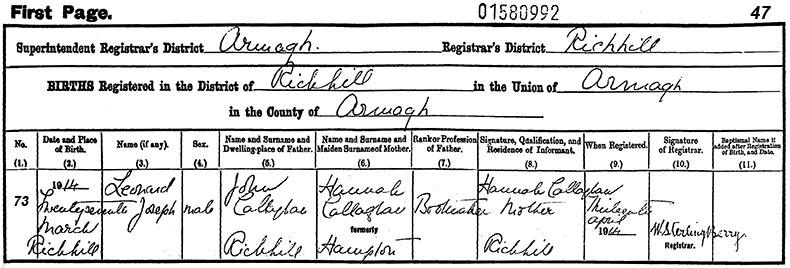 First Page.
01580992
47
Superintendent Registrar's District Armagh. Registrar's District Richhill
BIRTHS Registered in the District of Richhill in the Union of Armagh
in the County of Armagh
No. Date and Place of Birth. Name (if any). Sex. Name and Surname and Dwelling-place of Father. Name and Surname and Maiden Surname of Mother. Rank or Profession of Father. Signature, Qualification, and Residence of Informant. When Registered. Signature of Registrar. Baptismal Name if added after Registration of Birth, and Date.
(1.) (2.) (3.) (4.) (5.) (6.) (7.) (8.) (9.) (10.) (11.)
1914 Leonard John Hannah Hannah Callaghan
73 Twentyseventh Joseph male Callaghan Callaghan Bootmaker Mother Thirteenth
March formerly April
Richhill Richhill Hampton Richhill 1914 W. Sterling Berry.
Registrar.